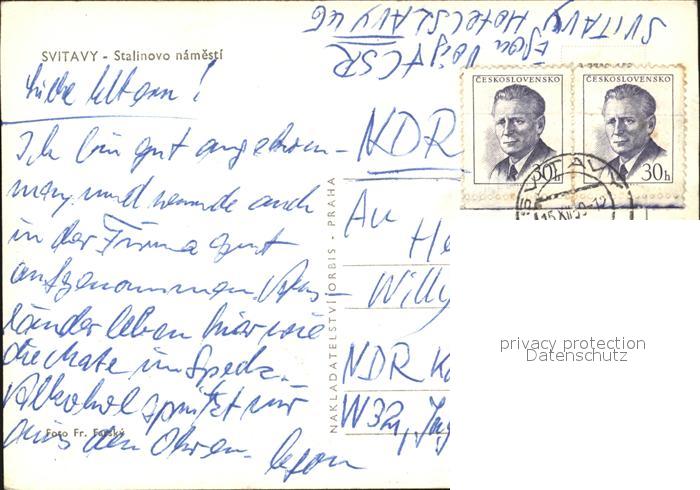 SVITAVY - Stalinovo náměstí
Liebe Eltern!
Ich bin gut angekom-
men, und wurde auch
in der Firma gut
aufgenommen. Aus-
länder leben hier wie
die Made im Speck.
Alkohol spritzt mir
aus den Ohren. Egon
Foto Fr. Farský
NAKLADATELSTVÍ ORBIS - PRAHA
SVITAVY
HOTEL SLAVY
Egon
ČSR
ČESKOSLOVENSKO
30h
ČESKOSLOVENSKO
30h
SVITAVY
15.XII.59-12
NDR
An
He
Willy
NDR
privacy protection
Datenschutz